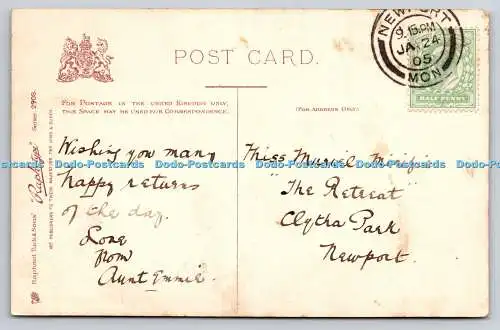 POST CARD.
NEWPORT
9.15 PM
JA 24
05
MON
HALF PENNY
FOR POSTAGE IN THE UNITED KINGDOM ONLY,
THIS SPACE MAY BE USED FOR CORRESPONDENCE.
(FOR ADDRESS ONLY.)
Wishing you many
happy returns
of the day.
Love
from
Aunt Emmie.
Miss Muriel
"The Retreat"
Clytha Park
Newport.
Raphael Tuck & Sons' "Rapholette" Series 2908
Dopo-Postcards Dopo-Postcards Dopo-Postcards Dopo-Postcards Dopo-Postcards